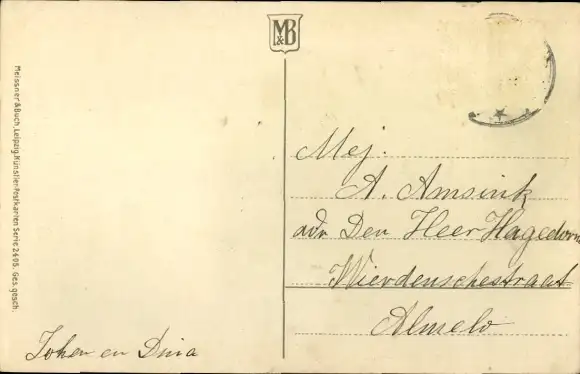 M&B
Meissner & Buch, Leipzig, Künstlerpostkarten Serie 2405. Ges. gesch.
Mej.
A. Amsink
adr Den Heer Hagedorn
Wierdenschestraat
Almelo
Johan en Dina